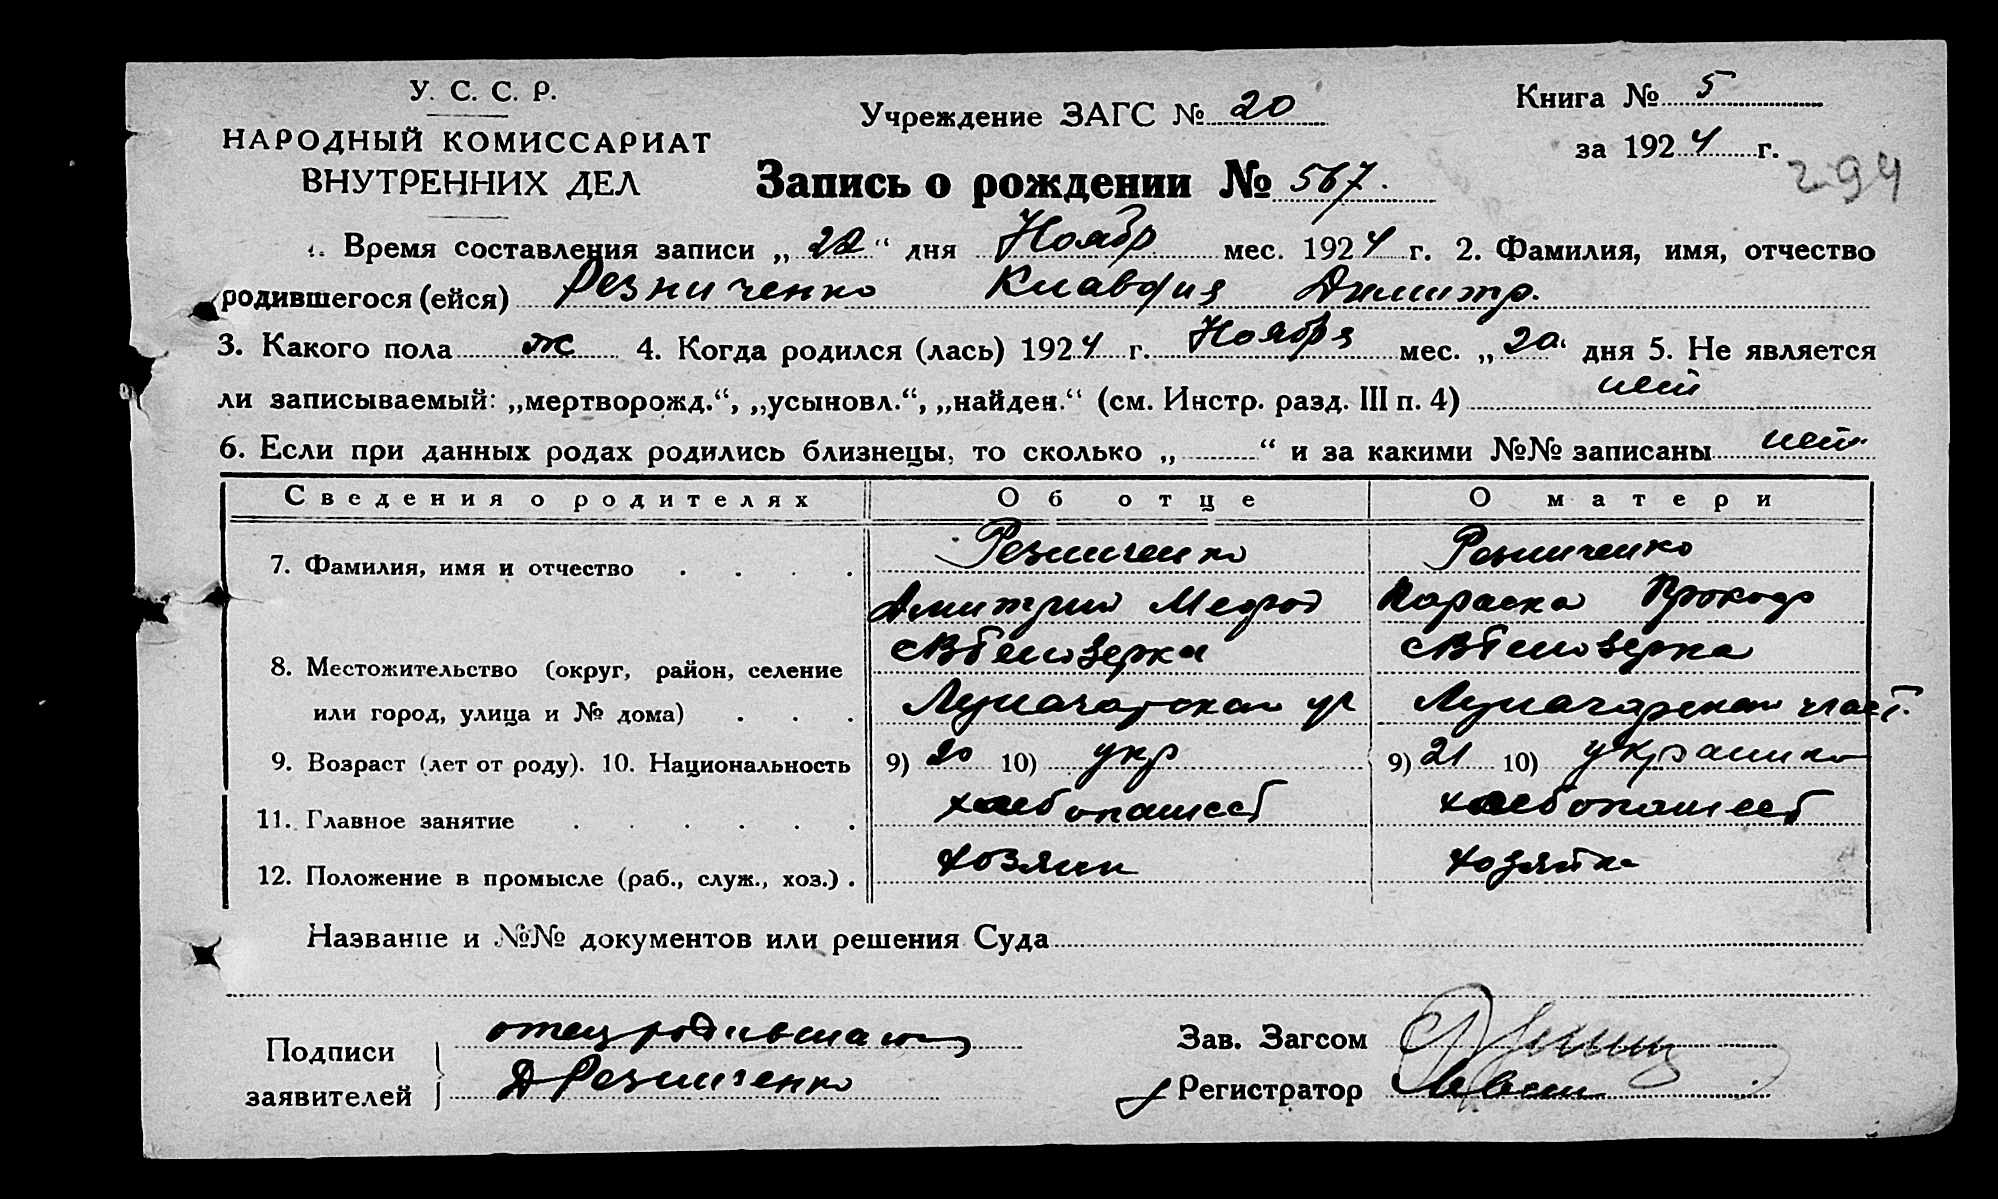 У. С. С. Р.
НАРОДНЫЙ КОМИССАРИАТ
ВНУТРЕННИХ ДЕЛ
Учреждение ЗАГС № 20
Книга № 5
за 1924 г.
294
Запись о рождении № 567.
1. Время составления записи „22“ дня Ноябр мес. 1924 г. 2. Фамилия, имя, отчество
родившегося (ейся) Резниченко Клавдия Димитр.
3. Какого пола ж 4. Когда родился (лась) 1924 г. Ноября мес. „20“ дня 5. Не является
ли записываемый: „мертворожд.“, „усыновл.“, „найден.“ (см. Инстр. разд. III п. 4) нет
6. Если при данных родах родились близнецы, то сколько „ “ и за какими №№ записаны нет
Сведения о родителях Об отце О матери
7. Фамилия, имя и отчество Резниченко Резниченко
Дмитрий Мефод Параска Прокоф
8. Местожительство (округ, район, селение с В Белозерка с В Белозерка
или город, улица и № дома) Луначарская ул Луначарская
9. Возраст (лет от роду). 10. Национальность 9) 20 10) укр 9) 21 10) украинка
11. Главное занятие хлебопашест хлебопашест
12. Положение в промысле (раб., служ., хоз.) хозяин хозяйка
Название и №№ документов или решения Суда
Подписи заявителей
отец родившаюся
Д Резниченко
Зав. Загсом
Регистратор